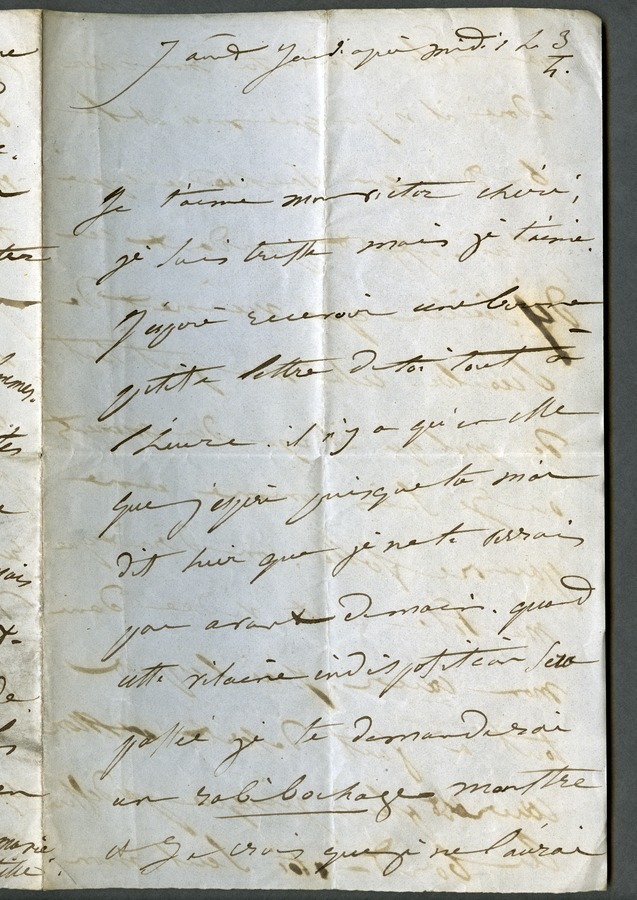 7 août Jeudi après midi 1 h 3/4.
Je t'aime mon victor chéri,
je suis triste mais je t'aime.
J'espère recevoir une bonne
petite lettre de toi tout à
l'heure. il n'y a qu'en elle
que j'espère puisque tu m'as
dit hier que je ne te verrais
pas avant demain. quand
cette vilaine indisposition sera
passée je te demanderai
un rabibochage monstre
et je crois que je ne l'aurai